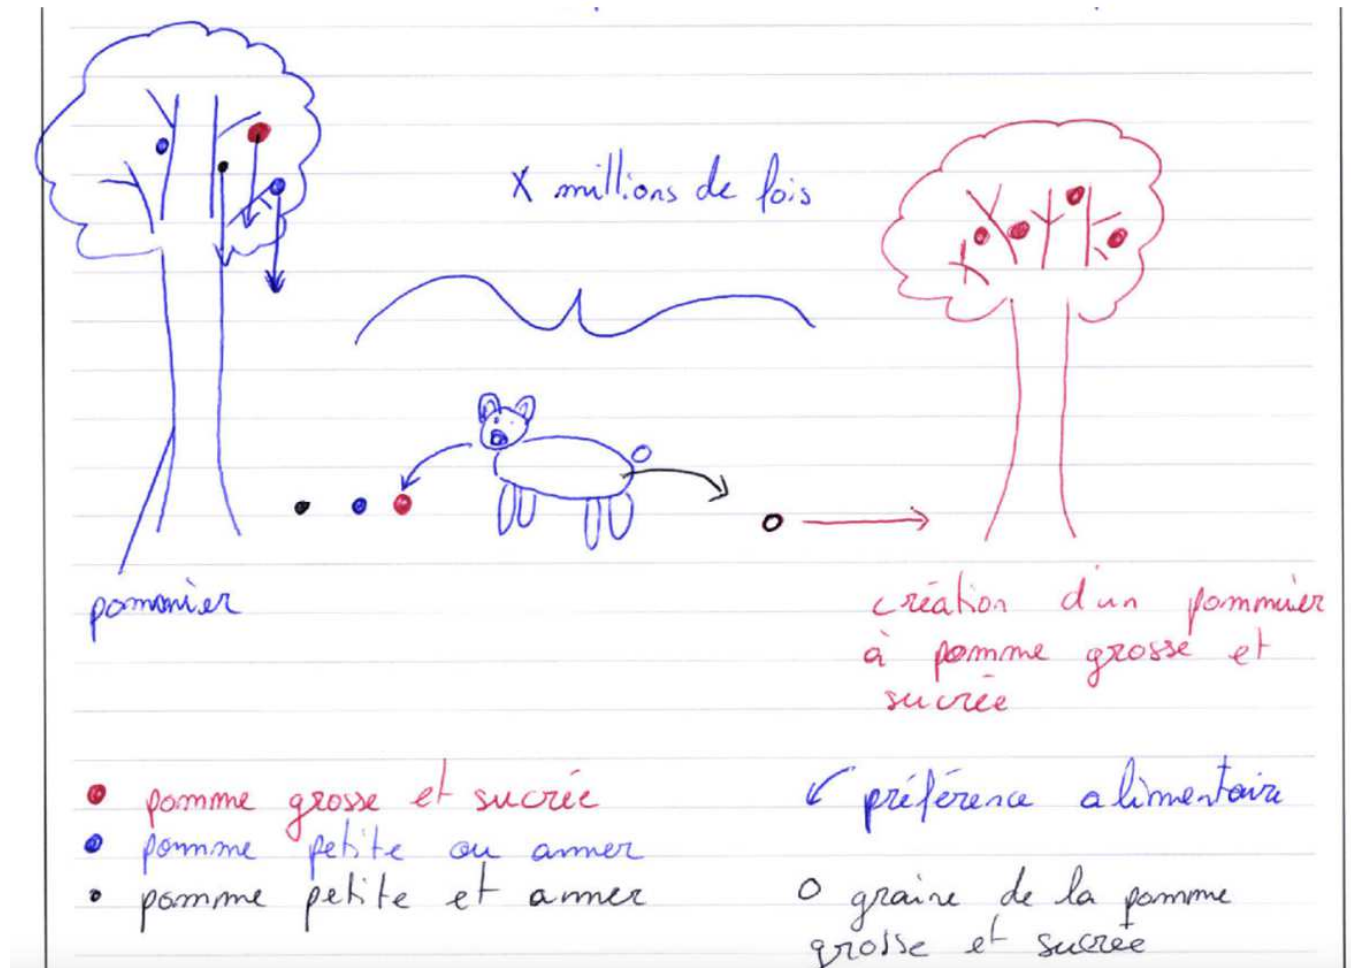 X millions de fois
pommier
création d'un pommier
à pomme grosse et
sucrée
pomme grosse et sucrée
pomme petite ou amer
pomme petite et amer
préférence alimentaire
graine de la pomme
grosse et sucrée